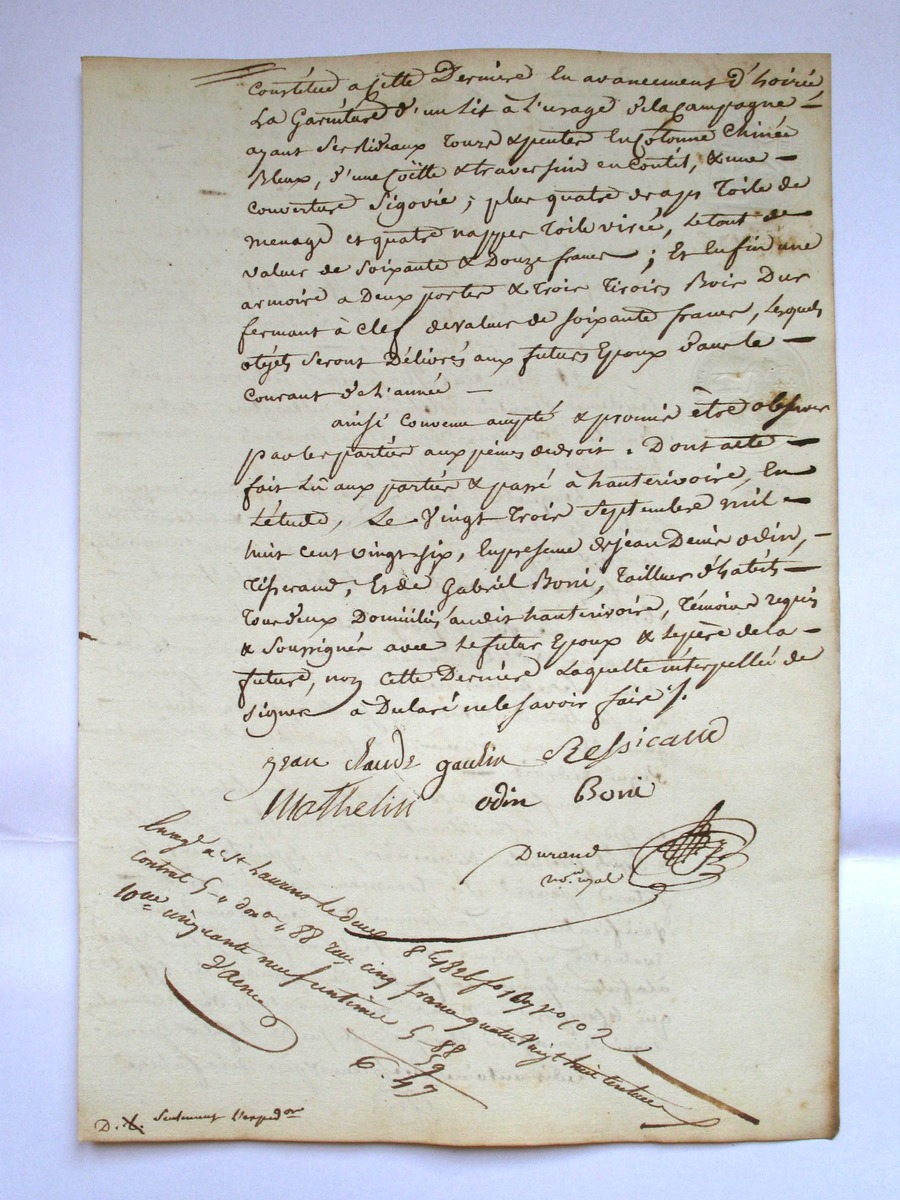 constitué a cette Derniere en avancement d'hoirie
La Garniture d'un Lit à l'usage de la Campagne
ayant ses Rideaux Tours & pentes en Cotonne Chinée
Bleux, d'une Coëtte & traversin en Coutit, & une
couverture Sigovie; plus quatre draps Toile de
menage et quatre nappes Toile visié, Le tout de
valeur de Soixante & Douze francs; Et Enfin une
armoire a Deux portes & trois Tiroirs Bois Dur
fermant à Clef de valeur de soixante francs, Lesquels
objets seront Délivrés aux futurs Epoux dans le
courant de l'année
ainsi convenu accepté & promis être observé
par les parties aux peines de droit. Dont acte
fait Lû aux parties & passé à hauterivoire, En
L'étude, Le Vingt Trois Septembre mil
huit cent vingt-six, En presence de jean Denis odin,
Tisserand, Et de Gabriel Boni, Tailleur d'habits
Tous deux Domiciliés audit hauterivoire, Témoins requis
& Soussignés avec Le futur Epoux & Le père de la
future, non cette Derniere Laquelle interpellée de
signer à Déclaré ne le savoir faire /.
jean claude gaulin Ressicaud
Mathelin odin Boni
Durand
no.re royal
Enreg.é a S.t Laurent Le deux 8bre 1826 f.o
contrat 5 " don.on " 88 reçu cinq francs quatre vingt huit centimes
10me cinquante neuf centimes 5-88
59
6.47
D. X. seulement l'exped.on